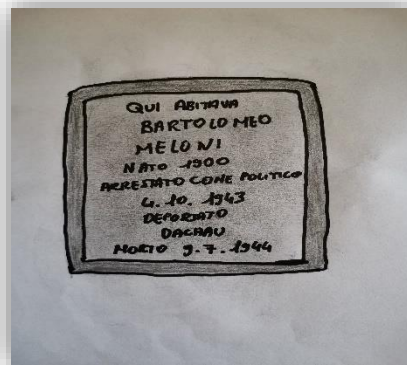 QUI ABITAVA
BARTOLOMEO
MELONI
NATO 1900
ARRESTATO COME POLITICO
4.10.1943
DEPORTATO
DACHAU
MORTO 9.7.1944